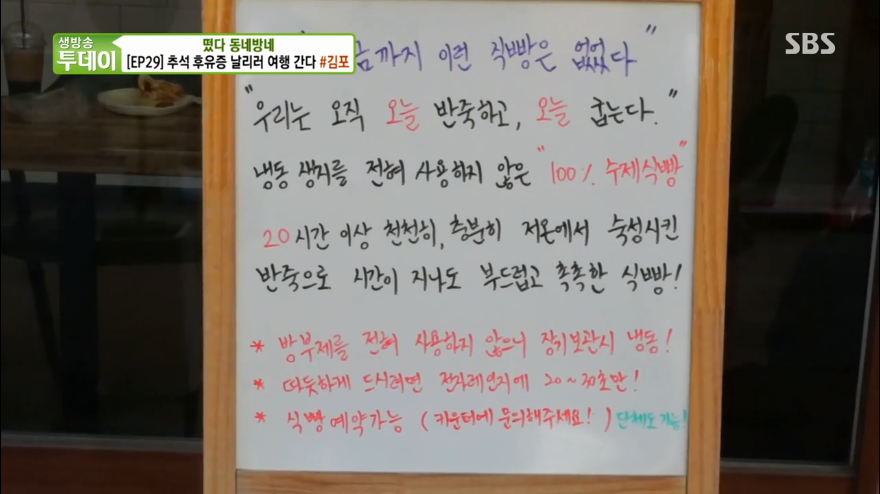 생방송 투데이
떴다 동네방네
[EP29] 추석 후유증 날리러 여행 간다 #김포
SBS
까지 이런 식빵은 없었다"
"우리는 오직 오늘 반죽하고, 오늘 굽는다."
냉동 생지를 전혀 사용하지 않은 "100% 수제식빵"
20시간 이상 천천히, 충분히 저온에서 숙성시킨
반죽으로 시간이 지나도 부드럽고 촉촉한 식빵!
* 방부제를 전혀 사용하지 않으니 장기보관시 냉동!
* 따듯하게 드시려면 전자레인지에 20~30초만!
* 식빵예약가능 (카운터에 문의해주세요!) 단체도 가능!